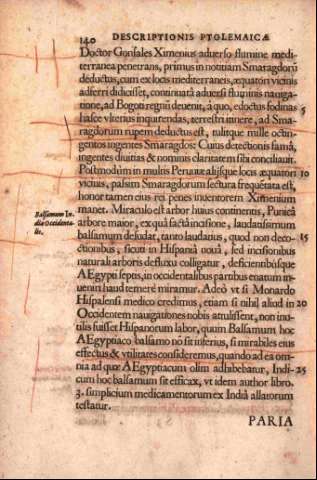 140 DESCRIPTIONIS PTOLEMAICÆ
Doctor Gonsales Ximenius aduerso flumine medi-
terranea penetrans, primus in notitiam Smaragdorū
deductus, cum ex locis mediterraneis, æquatori vicinis
adferri didicisset, continuatâ aduersi fluminis nauiga-
tione, ad Bogoti regnū deuenit, à quo, edoctus fodinas 5
hasce vlterius inquirendas, terrestri itinere, ad Sma-
ragdorum rupem deductus est, tulitque mille octin-
gentos ingentes Smaragdos: Cuius detectionis famâ,
ingentes diuitias & nominis claritatem sibi conciliauit.
Postmodùm in multis Peruuæ alijsque locis æquatori 10
vicinis, passim Smaragdorum sectura frequētata est,
honor tamen eius rei penes inuentorem Ximenium
manet. Miraculo est arbor huius continentis, Punicâ
arbore maior, ex quâ factâ incisione, laudatissimum
balsamum desudat, tanto laudatius, quod non deco- 15
ctionibus, sicuti in Hispaniâ nouâ, sed incisionibus
naturali arboris defluxu colligatur, deficientibúsque
AEgypti septis, in occidentalibus partibus enatum in-
uenin haud temerè miramur. Adeò vt si Monardo
Hispalensi medico credimus, etiam si nihil aliud in 20
Occidentem nauigationes nobis attulissent, non inu-
tilis fuisset Hispanorum labor, quùm Balsamum hoc
AEgyptiaco balsamo nō sit inferius, si mirabiles eius
effectus & vtilitates consideremus, quando ad ea om-
nia ad quæ AEgyptiacum olim adhibebatur, Indi- 25
cum hoc balsamum sit efficax, vt idem author libro.
3. simplicium medicamentorum ex Indiâ allatorum
testatur.
PARIA
Balsamum In-
diæ Occidenta-
lis.